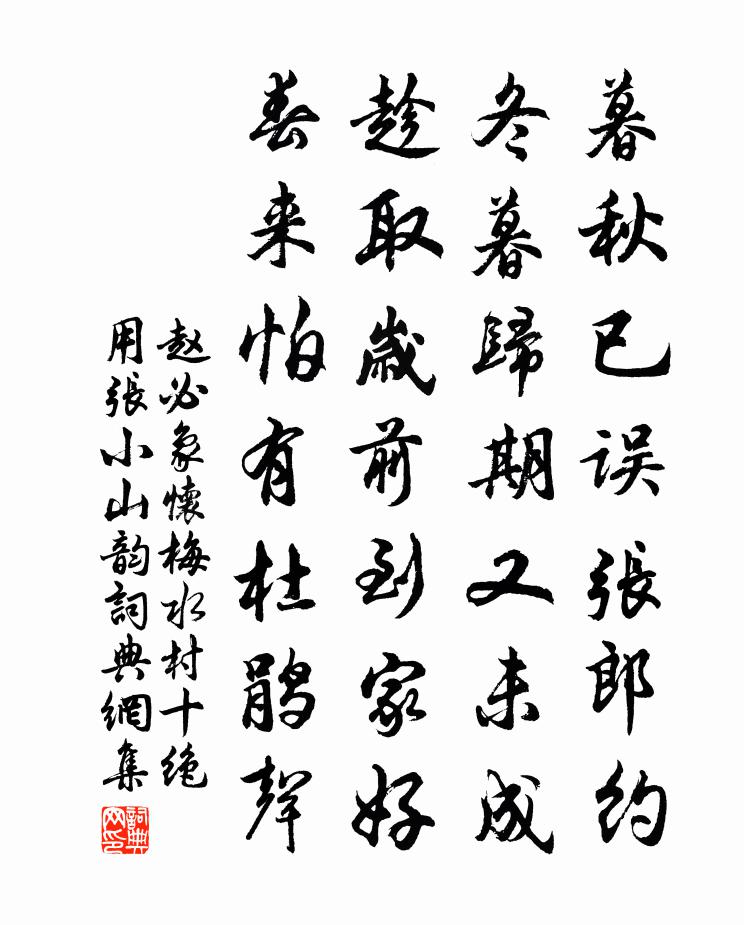 暮秋已误張郎约
冬暮歸期又未成
趁取歲前到家好
春来怕有杜鹃聲
赵必象懷梅水村十绝
用張小山韵詞典網集
詞典网印